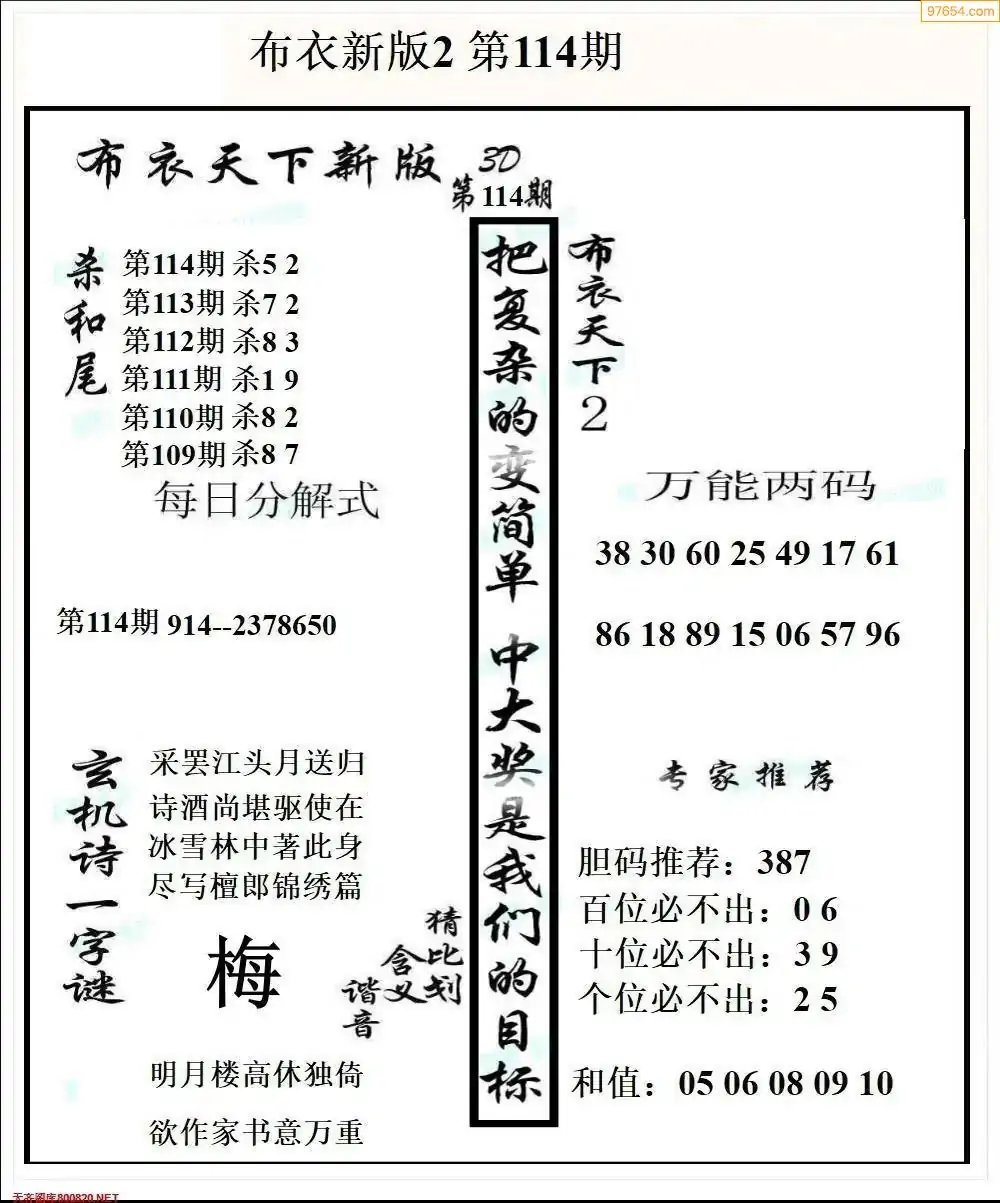 97654.com
布衣新版2 第114期
布衣天下新版 3D
第114期
杀和尾
第114期 杀5 2
第113期 杀7 2
第112期 杀8 3
第111期 杀1 9
第110期 杀8 2
第109期 杀8 7
每日分解式
第114期 914--2378650
玄机诗一字谜
采罢江头月送归
诗酒尚堪驱使在
冰雪林中著此身
尽写檀郎锦绣篇
梅
猜比划
含义
谐音
明月楼高休独倚
欲作家书意万重
把复杂的变简单 中大奖是我们的目标
布衣天下2
万能两码
38 30 60 25 49 17 61
86 18 89 15 06 57 96
专家推荐
胆码推荐：387
百位必不出：0 6
十位必不出：3 9
个位必不出：2 5
和值：05 06 08 09 10
天齐图库800820.NET